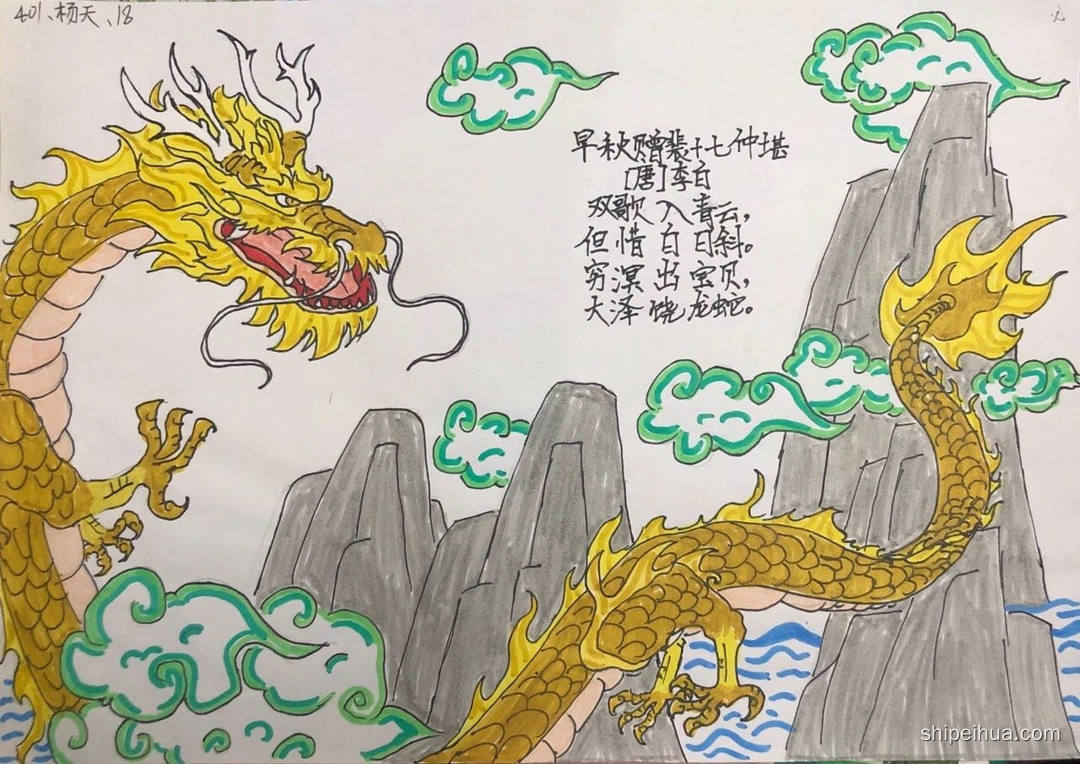 401、杨天、18
早秋赠裴十七仲堪
[唐]李白
双歌入青云，
但惜白日斜。
穷溟出宝贝，
大泽饶龙蛇。
shipeihua.com